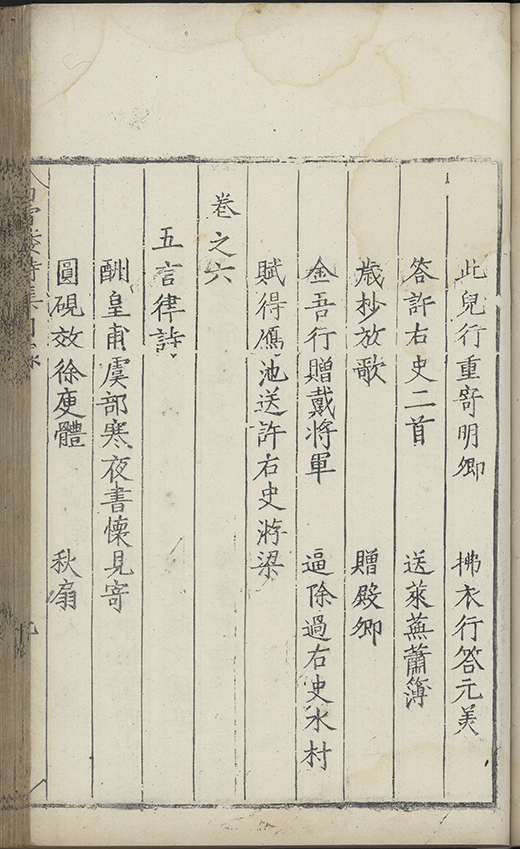 此兒行重寄明卿 拂衣行答元美
答許右史二首 送萊蕪蕭簿
歲杪放歌 贈殿卿
金吾行贈戴將軍 逼除過右史水村
賦得鴈池送許右史游梁
卷之六
五言律詩
酬皇甫虞部寒夜書懷見寄
圓硯效徐庾體 秋扇